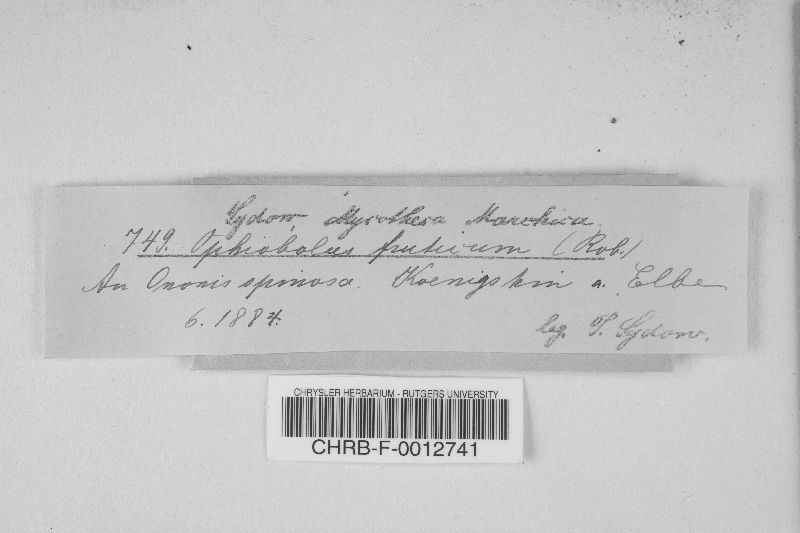 Sydow, Mycotheca Marchica.
749. Ophiobolus fruticum (Rob.)
An Ononis spinosa. Koenigstein a. Elbe
6. 1884.
leg. P. Sydow.
CHRYSLER HERBARIUM - RUTGERS UNIVERSITY
CHRB-F-0012741